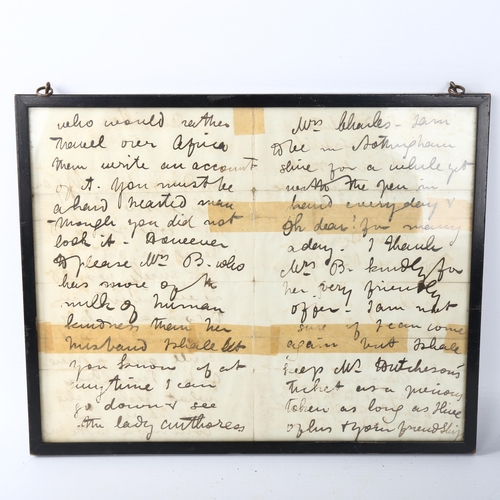 who would rather
travel over Africa
than write an account
of it. You must be
a hard hearted man
though you did not
look it. However
to please Mrs B. who
has more of the
milk of human
kindness than her
husband I shall let
you know if at
any time I can
go down & see
the lady authoress
Mrs Charles. I am
to be in Nottingham
shire for a while yet
with the pen in
hand everyday &
Oh dear! for many
a day. I thank
Mrs B. kindly for
her very friendly
offer. I am not
sure if I can come
again but I shall
keep Mr Hutcheson's
ticket as a precious
token as long as I live
of his & your friendship